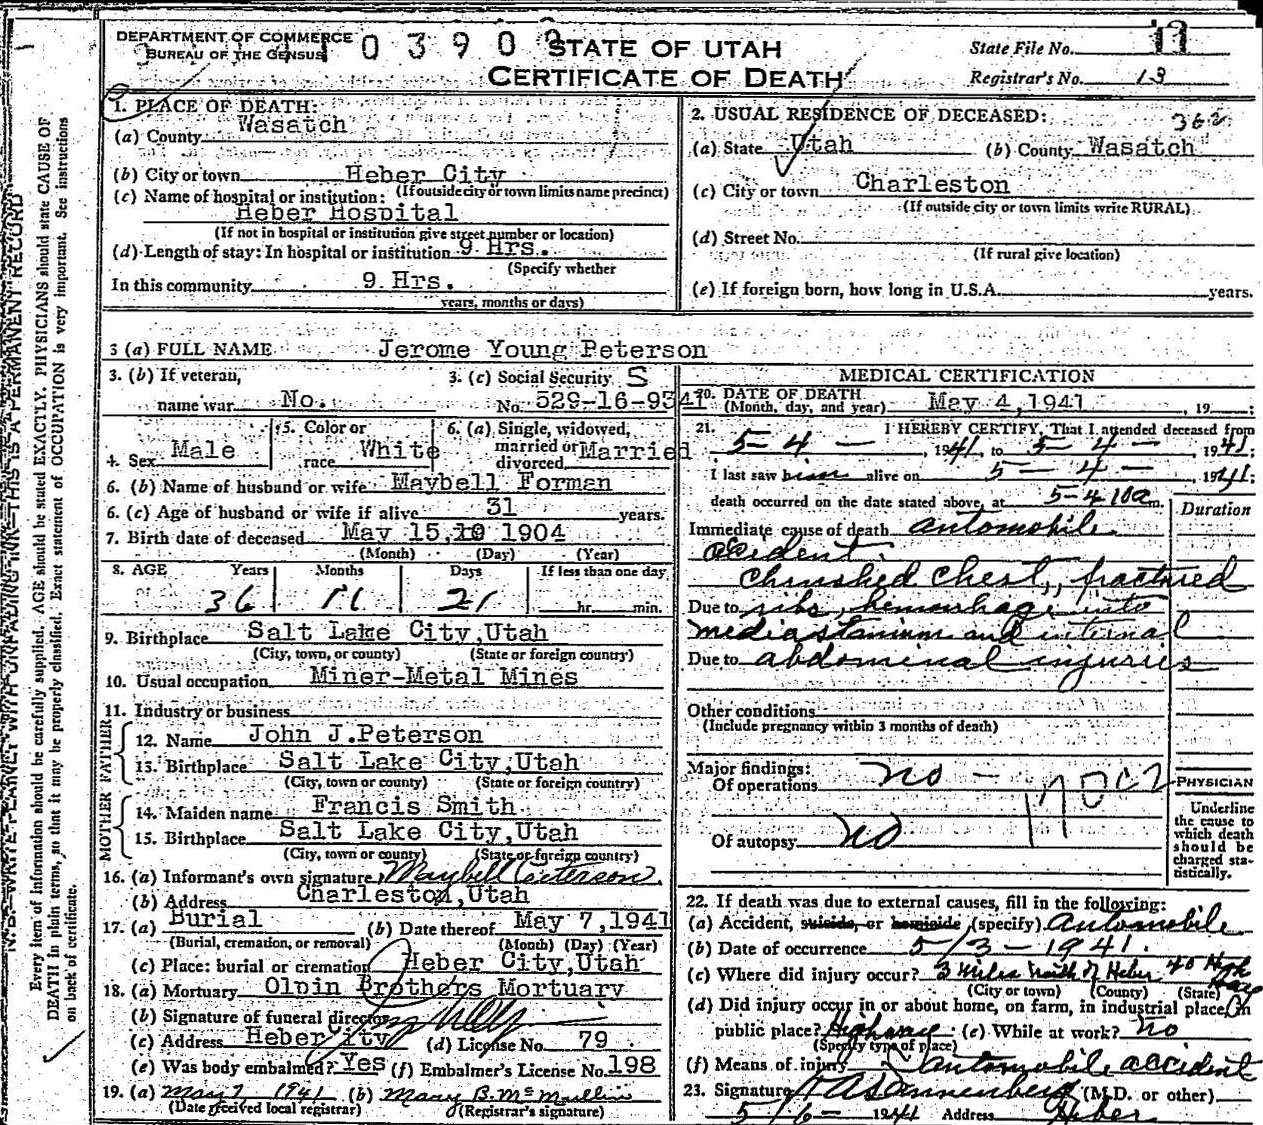 DEPARTMENT OF COMMERCE
BUREAU OF THE CENSUS
0 3 9 0
STATE OF UTAH
CERTIFICATE OF DEATH
State File No. 11
Registrar's No. 13
1. PLACE OF DEATH:
(a) County Wasatch
(b) City or town Heber City
(If outside city or town limits name precinct)
(c) Name of hospital or institution:
Heber Hospital
(If not in hospital or institution give street number or location)
(d) Length of stay: In hospital or institution 9 Hrs.
(Specify whether
In this community 9 Hrs.
years, months or days)
2. USUAL RESIDENCE OF DECEASED:
362
(a) State Utah (b) County Wasatch
(c) City or town Charleston
(If outside city or town limits write RURAL)
(d) Street No.
(If rural give location)
(e) If foreign born, how long in U.S.A. years.
3 (a) FULL NAME Jerome Young Peterson
3. (b) If veteran, name war No.
3. (c) Social Security S
No. 529-16-9341
4. Sex Male
5. Color or race White
6. (a) Single, widowed, married or divorced Married
6. (b) Name of husband or wife Maybell Forman
6. (c) Age of husband or wife if alive 31 years.
7. Birth date of deceased May 15, 1904
(Month) (Day) (Year)
8. AGE Years Months Days If less than one day
36 11 21 hr. min.
9. Birthplace Salt Lake City, Utah
(City, town, or county) (State or foreign country)
10. Usual occupation Miner-Metal Mines
11. Industry or business
FATHER
12. Name John J. Peterson
13. Birthplace Salt Lake City, Utah
(City, town or county) (State or foreign country)
MOTHER
14. Maiden name Francis Smith
15. Birthplace Salt Lake City, Utah
(City, town or county) (State or foreign country)
16. (a) Informant's own signature Maybell Peterson
(b) Address Charleston, Utah
17. (a) Burial (b) Date thereof May 7, 1941
(Burial, cremation, or removal) (Month) (Day) (Year)
(c) Place: burial or cremation Heber City, Utah
18. (a) Mortuary Olpin Brothers Mortuary
(b) Signature of funeral director
(c) Address Heber ity (d) License No. 79
(e) Was body embalmed? Yes (f) Embalmer's License No. 198
19. (a) May 7 1941 (b) Mary B. McMullin
(Date received local registrar) (Registrar's signature)
MEDICAL CERTIFICATION
20. DATE OF DEATH
(Month, day, and year) May 4, 1941, 19 ;
21. I HEREBY CERTIFY, That I attended deceased from
5-4-, 1941, to 5-4-, 1941.
I last saw him alive on 5-4-, 1941;
death occurred on the date stated above, at 5-4 10a m.
Duration
Immediate cause of death automobile
acident.
chrushed chest, fractured
Due to ribs, hemorrhage into
mediastanium and internal
Due to abdominal injuries
Other conditions
(Include pregnancy within 3 months of death)
Major findings:
Of operations no -
170c2
Of autopsy no
PHYSICIAN
Underline
the cause to
which death
should be
charged sta-
tistically.
22. If death was due to external causes, fill in the following:
(a) Accident, suicide, or homicide (specify) Automobile
(b) Date of occurrence 5/3-1941.
(c) Where did injury occur? 3 miles north of Heber 40 High way
(City or town) (County) (State)
(d) Did injury occur in or about home, on farm, in industrial place, in
public place? Highway (e) While at work? no
(Specify type of place)
(f) Means of injury automobile accident
23. Signature (M.D. or other)
5/6- 1941 Address Heber
N.B.—WRITE PLAINLY WITH UNFADING INK—THIS IS A PERMANENT RECORD
Every item of information should be carefully supplied. AGE should be stated EXACTLY. PHYSICIANS should state CAUSE OF
DEATH in plain terms, so that it may be properly classified. Exact statement of OCCUPATION is very important. See instructions
on back of certificate.